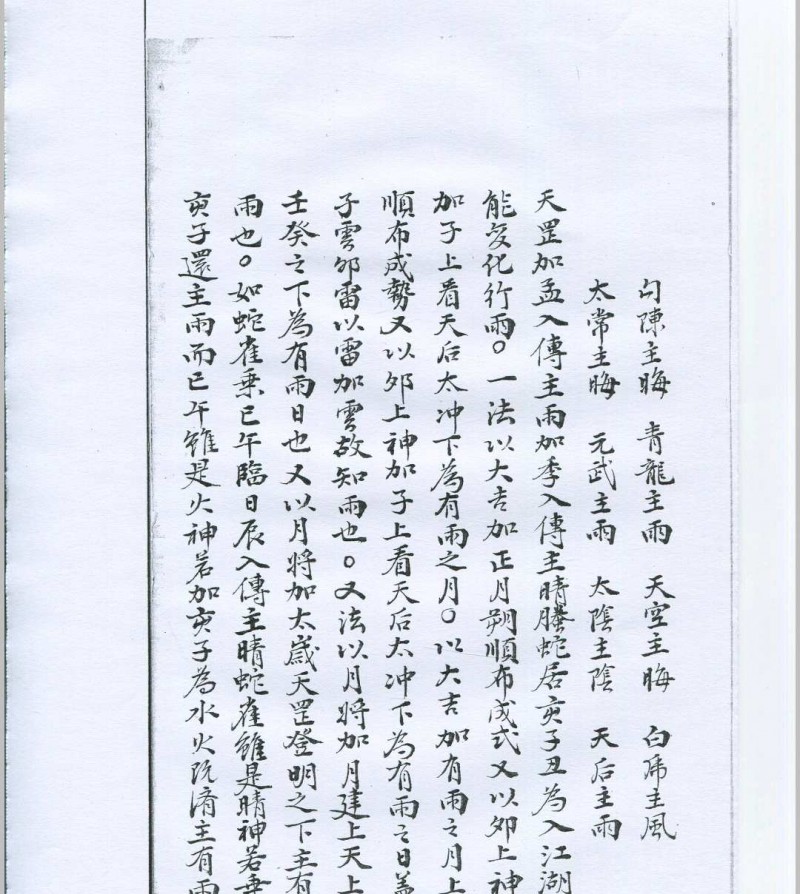 勾陳主晦　青龍主雨　天空主晦　白虎主風
太常主晦　元武主雨　太陰主陰　天后主雨
天罡加孟入傳主雨加季入傳主晴螣蛇居亥子丑為入江湖
能变化行雨。一法以大吉加正月朔順布成式又以卯上神
加子上看天后太冲下為有雨之月。以大吉加有雨之月上
順布成勢又以卯上神加子上看天后太冲下為有雨之日蓋
子雲卯雷以雷加雲故知雨也。又法以月將加月建上天上
壬癸之下為有雨日也又以月將加太歲天罡登明之下主有
雨也。如蛇雀乗巳午臨日辰入傳主晴蛇雀雖是晴神若乗
亥子還主雨而巳午雖是火神若加亥子為水火既濟主有雨